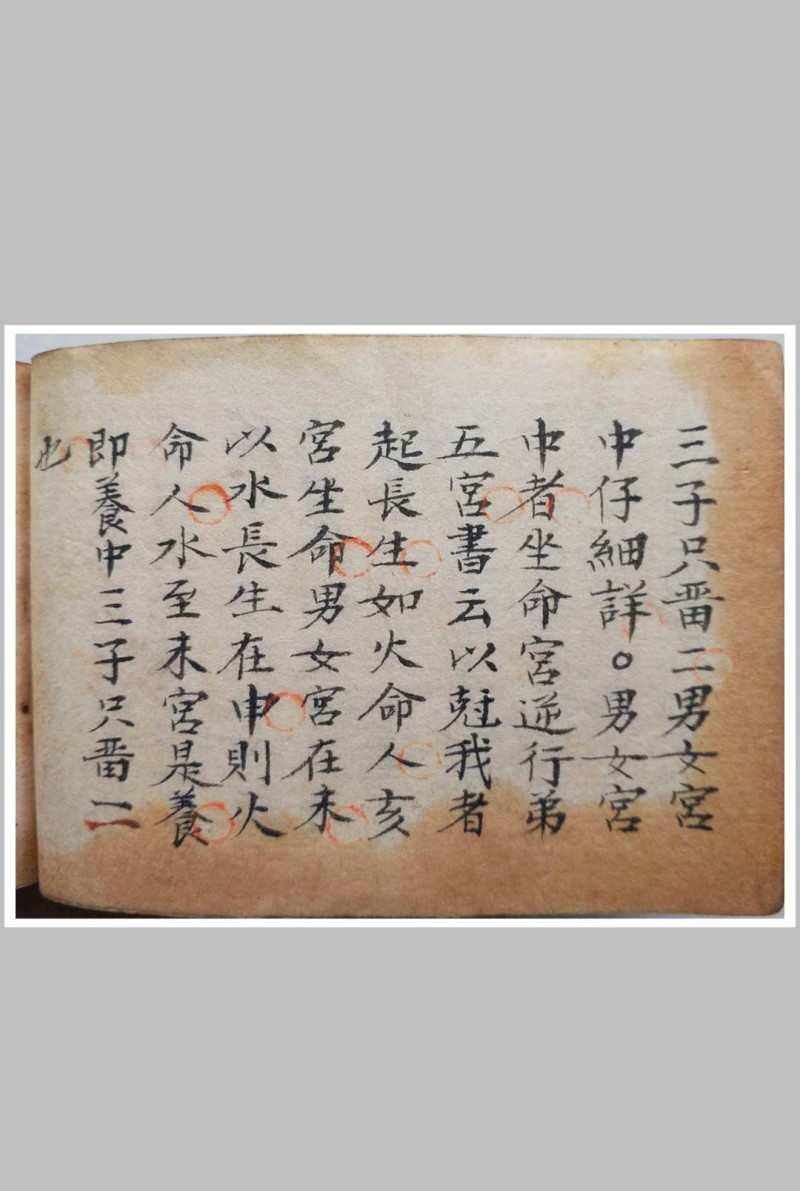 三子只畱二男女宮
中仔細詳○男女宮
中者坐命宮逆行弟
五宮書云以尅我者
起長生如火命人亥
宮坐命男女宮在未
以水長生在申則火
命人水至未宮是養
即養中三子只畱二
也